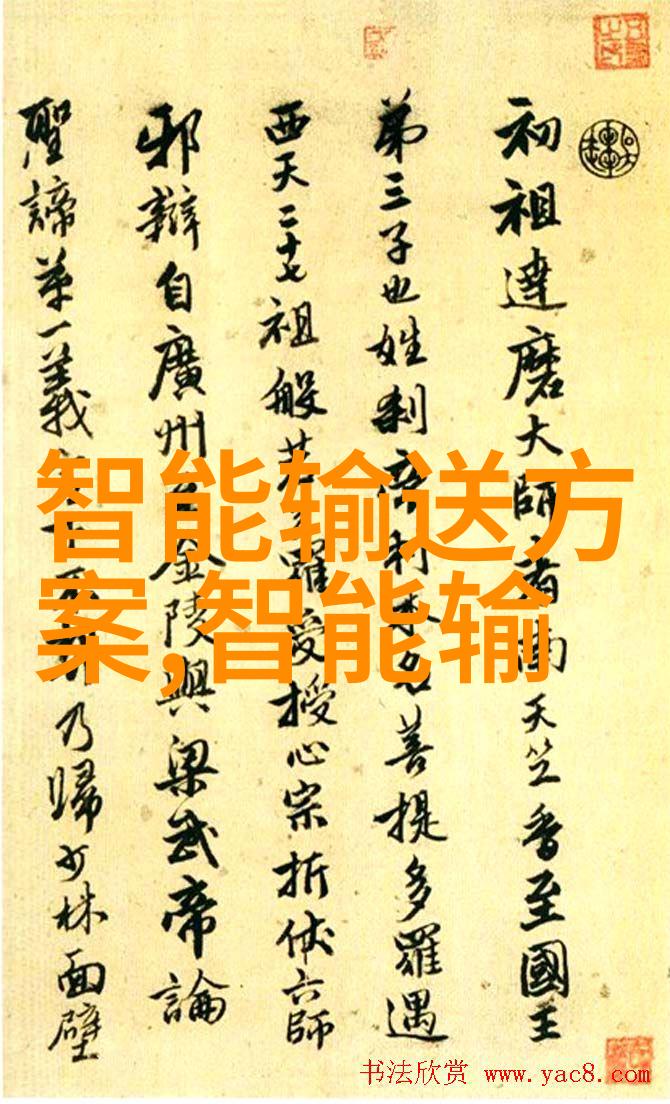 初祖達磨大師者南天竺香至國王
弟三子也姓刹帝利本名菩提多羅遇
西天二十七祖般若羅受授心宗折伏六師
邪辯自廣州金陵與梁武帝論
聖諦第一義乃歸少林面壁
智能输送方
案,智能输
书法欣赏 www.yac8.com